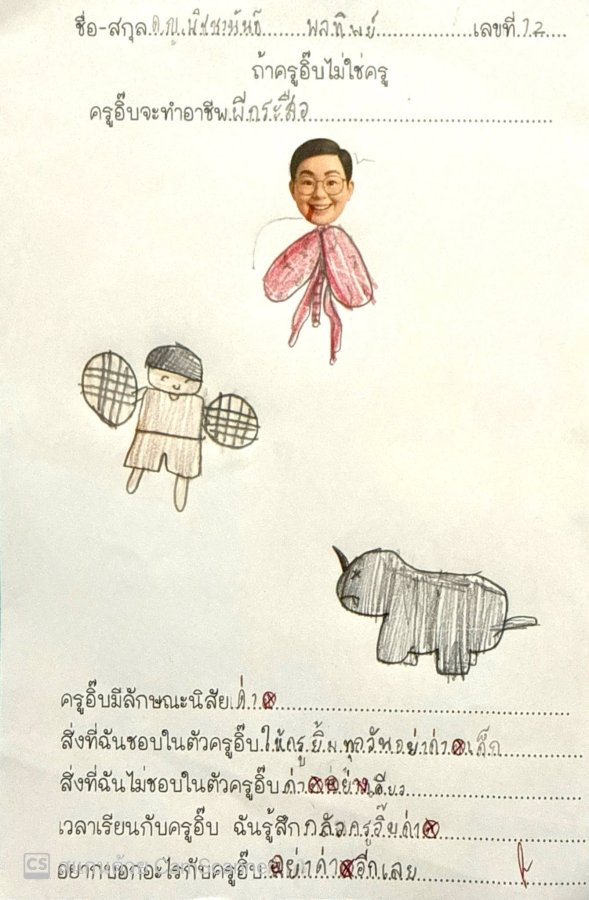 ชื่อ-สกุล ด.ญ. พลทิพย์ เลขที่ 12
ถ้าครูอิ๊บไม่ใช่ครู
ครูอิ๊บจะทำอาชีพ ผีกระสือ
ครูอิ๊บมีลักษณะนิสัย ด่า
สิ่งที่ฉันชอบในตัวครูอิ๊บ ให้ครูยิ้มทุกวันอย่าด่าเด็ก
สิ่งที่ฉันไม่ชอบในตัวครูอิ๊บ ด่าอย่างเดียว
เวลาเรียนกับครูอิ๊บ ฉันรู้สึก กลัวครูอิ๊บด่า
อยากบอกอะไรกับครูอิ๊บ อย่าด่าอีกเลย
CS สแกนด้วย CamScanner